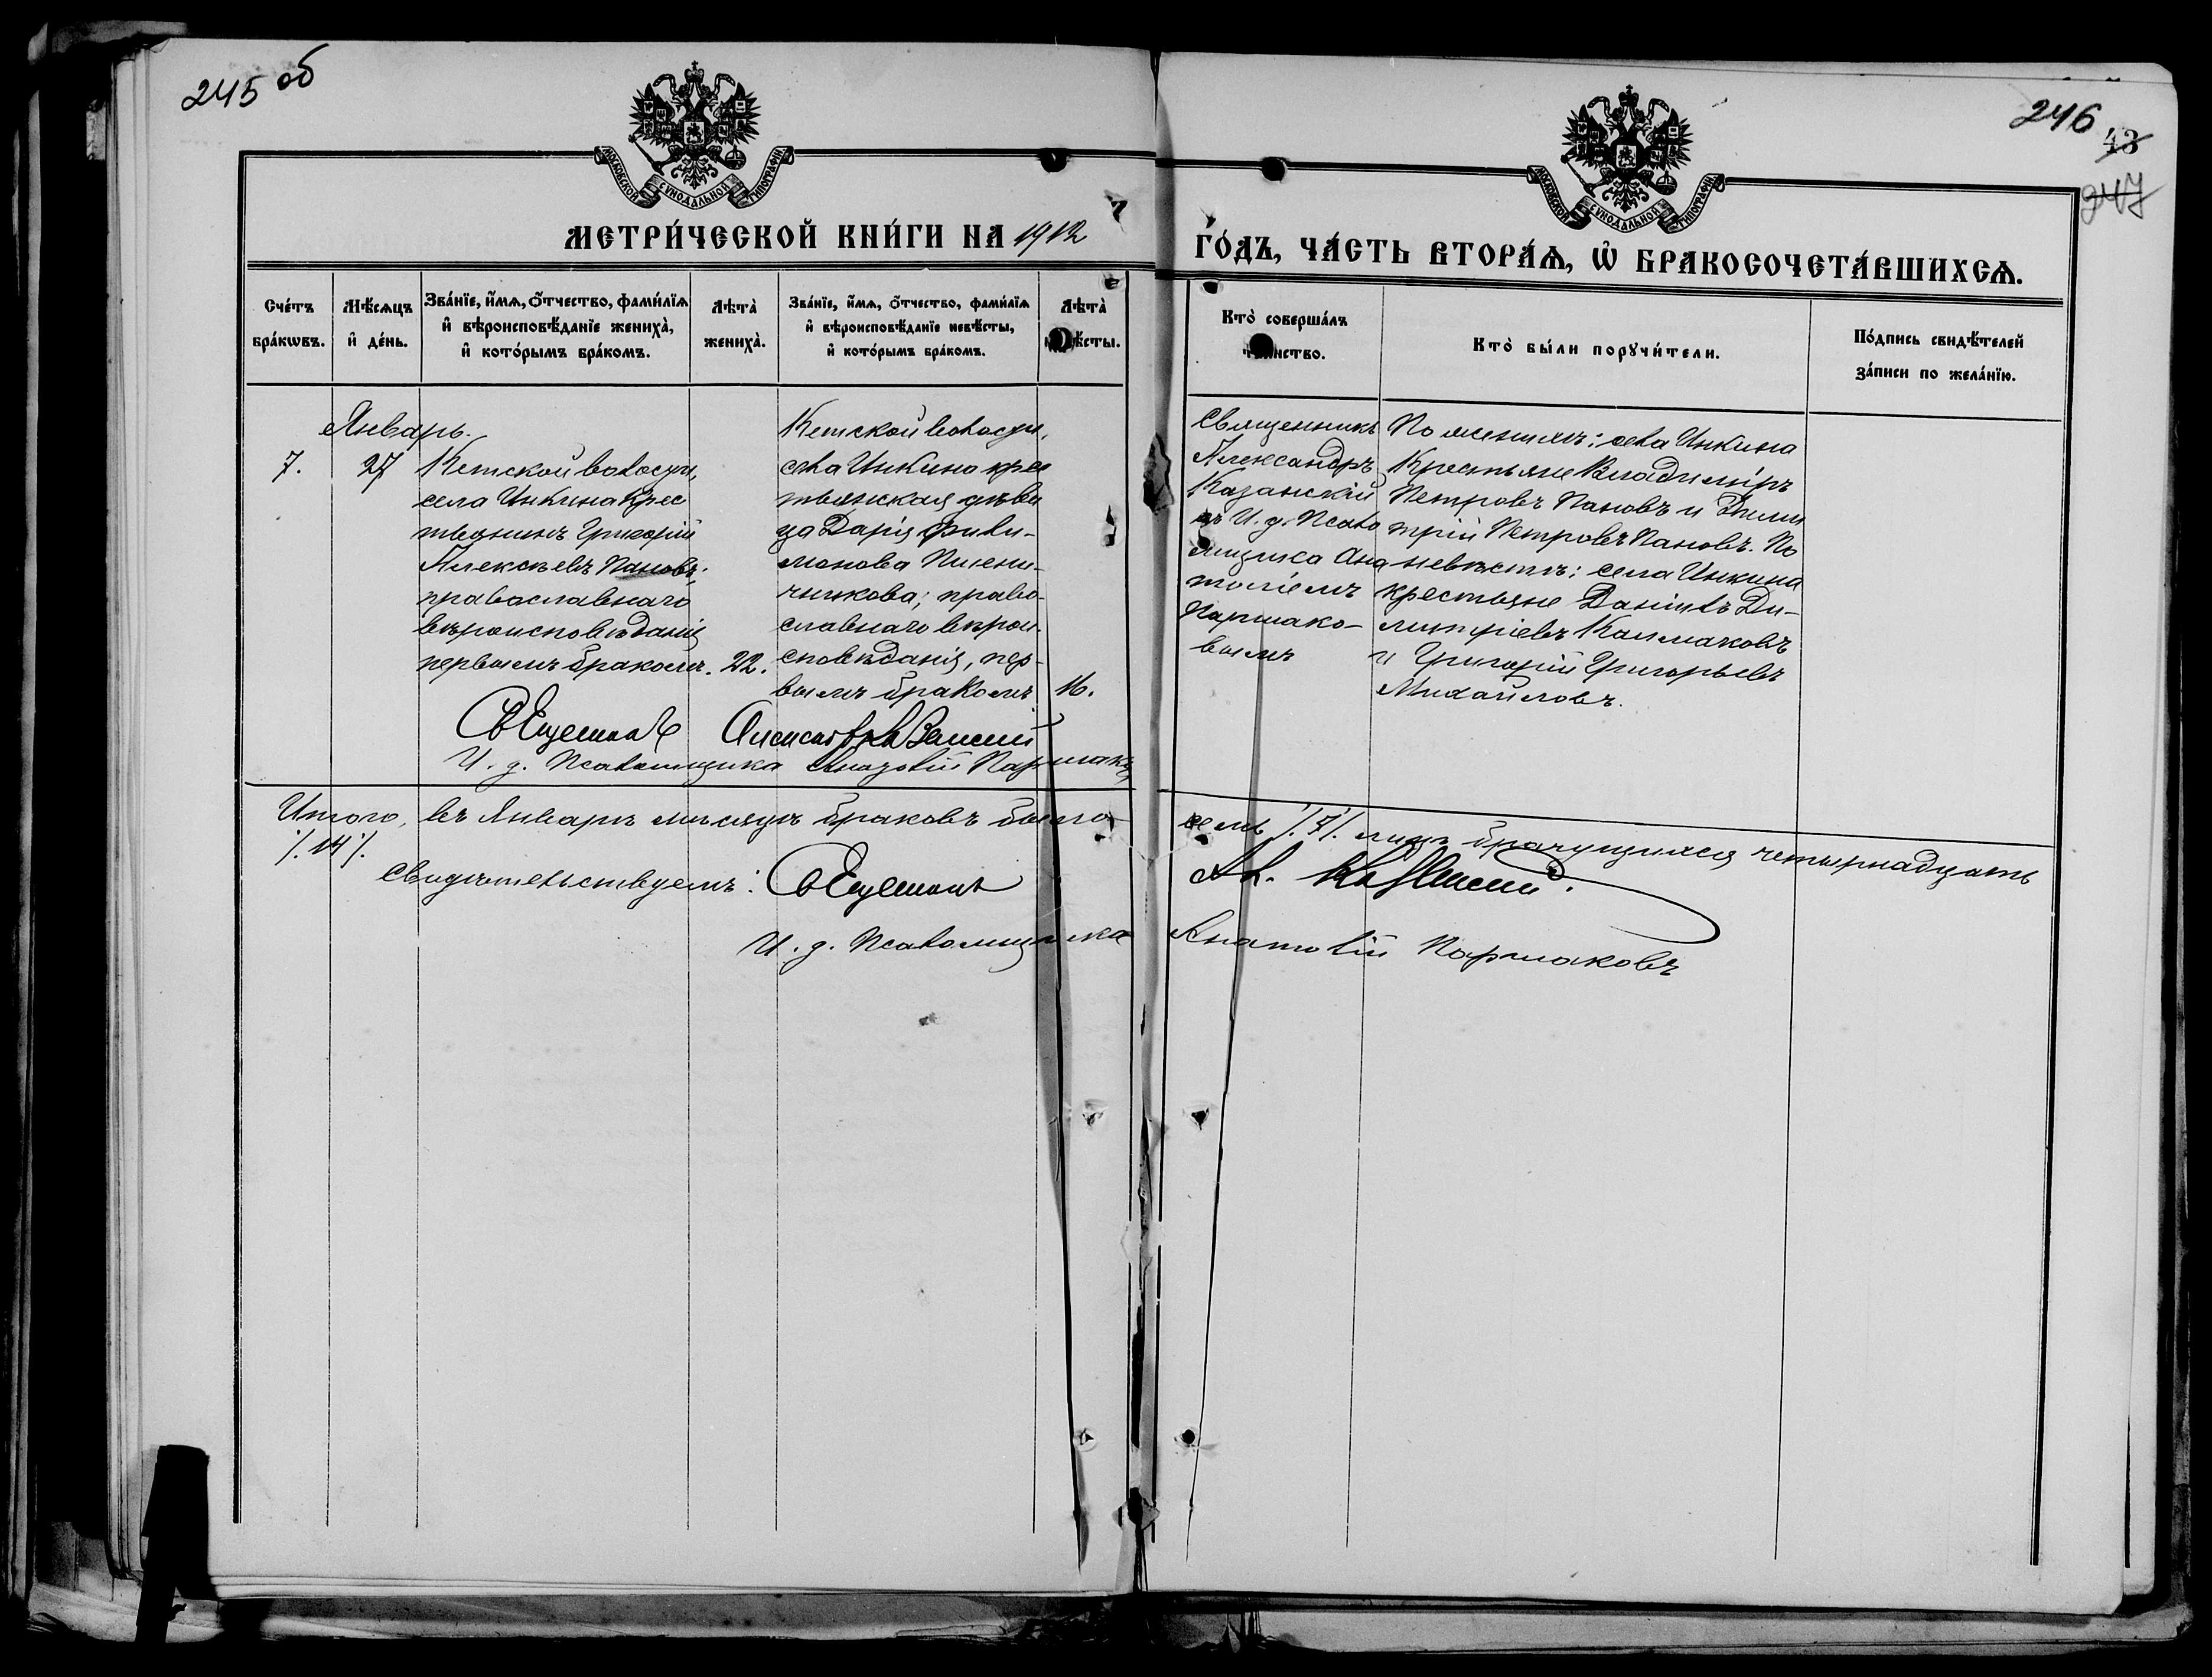 245 об
246
43
247
МОСКОВСКОЙ СѴНОДАЛЬНОЙ ТИПОГРАФІИ
МОСКОВСКОЙ СѴНОДАЛЬНОЙ ТИПОГРАФІИ
МЕТРИ́ЧЕСКОЙ КНИ́ГИ НА 1912
ГО́ДЪ, ЧА́СТЬ ВТОРА́Ѧ, Ѡ҆ БРАКОСОЧЕТА́ВШИХСѦ.
Сче́тъ
бра́кѡвъ.
Мѣ́сяцъ
и҆ де́нь.
Зва́нїе, и҆́мѧ, ѻ҆́тчество, фами́лїѧ
и҆ вѣроисповѣ́данїе жениха̀,
и҆ кото́рымъ бра́комъ.
Лѣта̀
жениха̀.
Зва́нїе, и҆́мѧ, ѻ҆́тчество, фами́лїѧ
и҆ вѣроисповѣ́данїе невѣ́сты,
и҆ кото́рымъ бра́комъ.
Лѣта̀
невѣ́сты.
Кто̀ соверша́лъ
таинство.
Кто̀ бы́ли порꙋчи́тели.
По́дпись свидѣ́телей
за́писи по жела́нїю.
Январь.
7.
27
Кетской волости,
села Инкина крес
тьянинъ Григорій
Алексѣевъ Пановъ;
православнаго
вѣроисповѣданія
первымъ бракомъ.
22.
Кетской волости,
села Инкина крес
тьянская дѣви
ца Дарія Фили-
монова Пшени-
чникова; право-
славнаго вѣрои-
сповѣданія, пер-
вымъ бракомъ
16.
Священникъ
Александръ
Казанскій
съ И. д. Псало
мщика Ана
толіемъ
Паршако-
вымъ
По женихѣ: села Инкина
Крестьяне Владиміръ
Петровъ Пановъ и Дими
трій Петровъ Пановъ. По
невѣстѣ: села Инкина
крестьяне Даніилъ Ди-
митріевъ Колмаковъ
и Григорій Григорьевъ
Михайловъ.
И. д. Псаломщика Анатолій Паршаковъ
Итого, въ Январѣ мѣсяцѣ браковъ было
семь /.7/. лицъ брачущихся четырнадцать
/.14/.
Свидѣтельствуемъ:
И. д. Псаломщика
Анатолій Паршаковъ